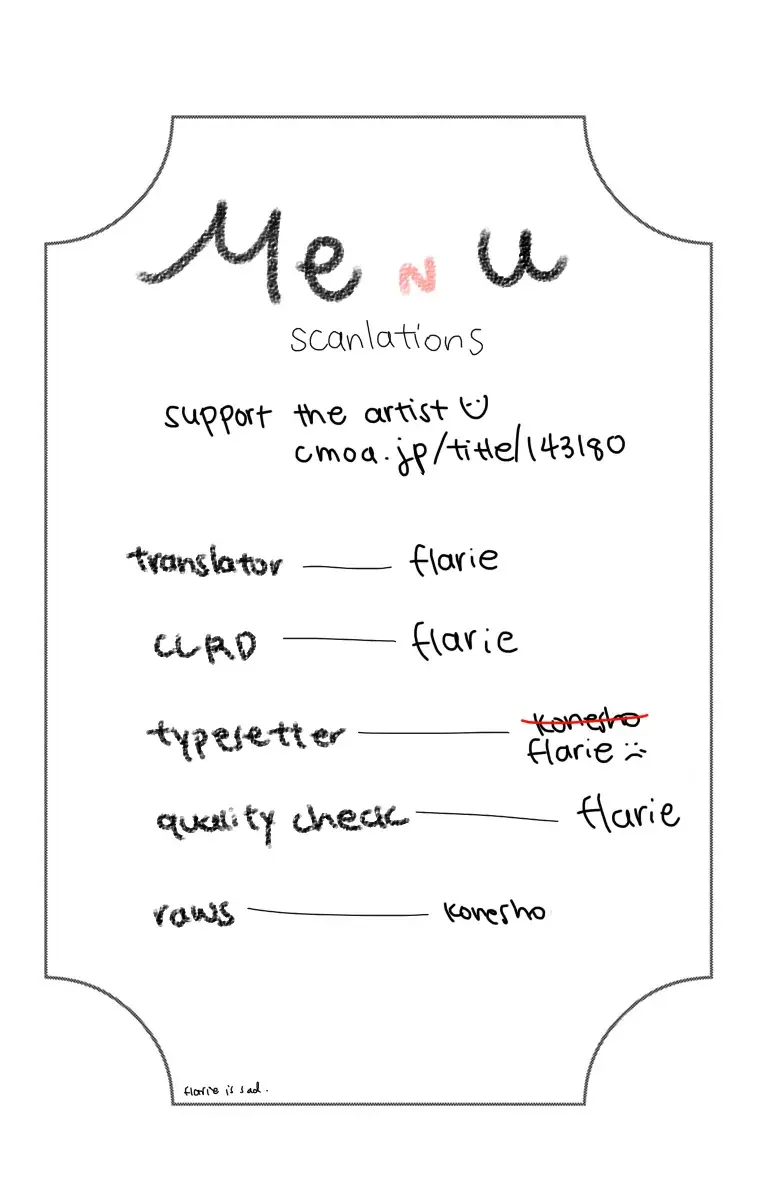 MeNu
scanlations
support the artist
cmoa.jp/title/143180
translator flarie
CLRD flarie
typesetter konesho
flarie :(
quality check flarie
raws konesho
flarie is sad.